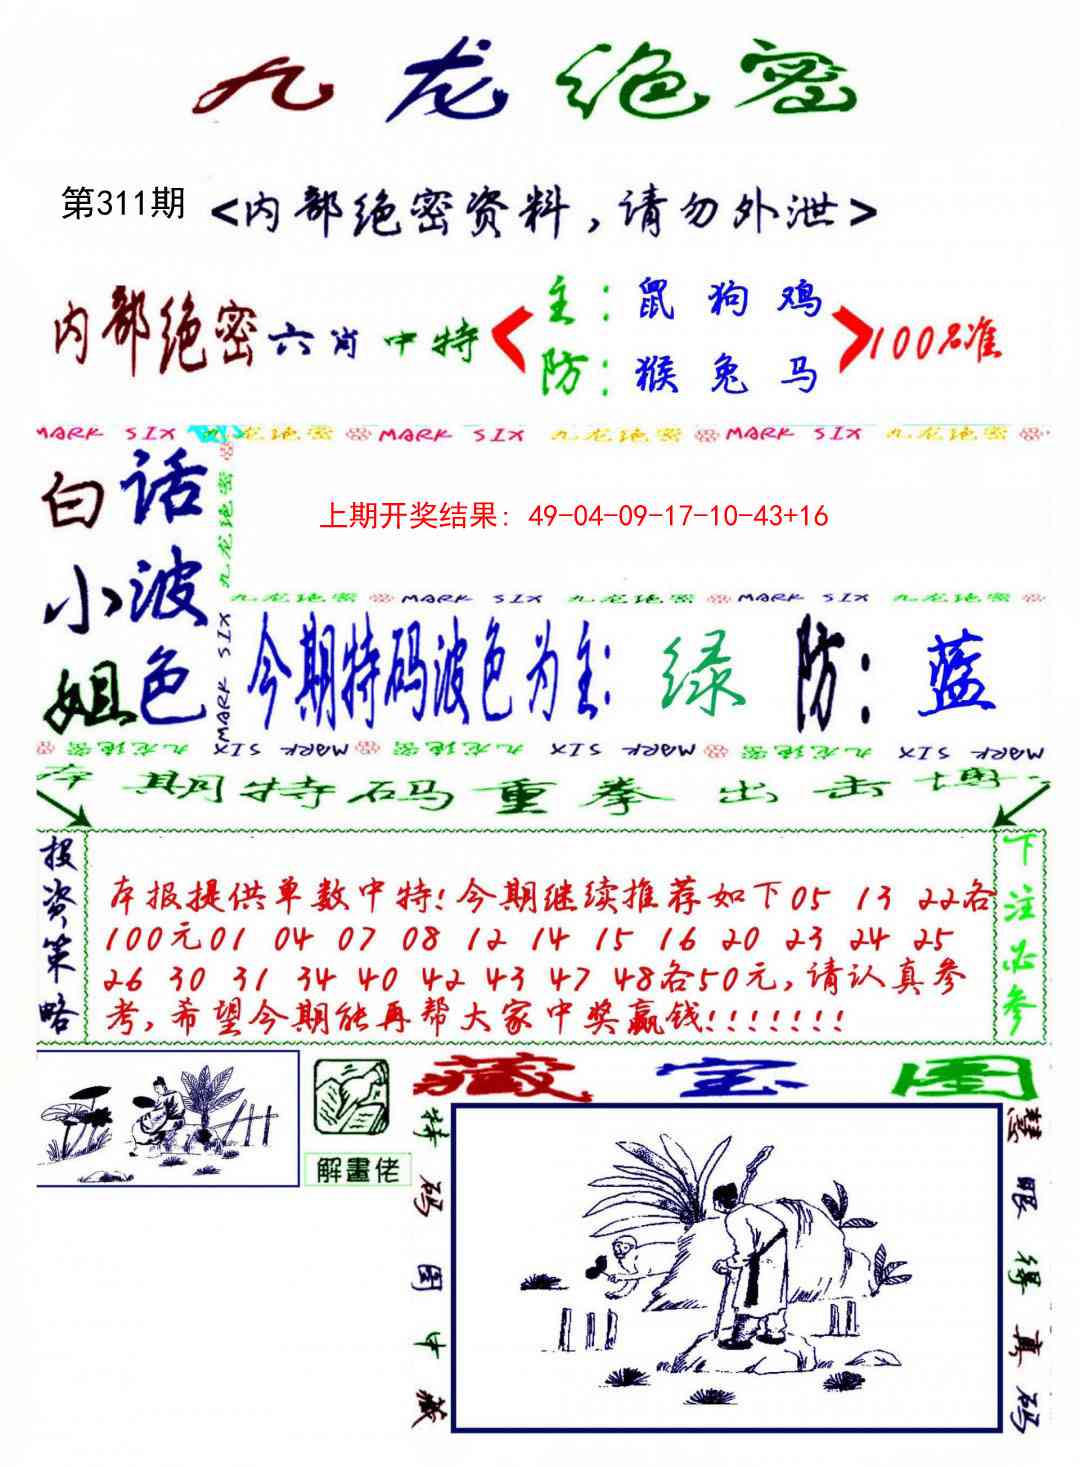 九龙绝密
第311期 <内部绝密资料,请勿外泄>
内部绝密六肖中特
主: 鼠 狗 鸡
防: 猴 兔 马
100%准
MARK SIX 九龙绝密 MARK SIX 九龙绝密 MARK SIX 九龙绝密
白小姐
话波色
九龙绝密
MARK SIX
上期开奖结果: 49-04-09-17-10-43+16
九龙绝密 MARK SIX 九龙绝密 MARK SIX 九龙绝密
今期特码波色为主: 绿 防: 蓝
九龙绝密 MARK SIX 九龙绝密 MARK SIX 九龙绝密 MARK SIX
本期特码重拳出击博
投资策略
本报提供单数中特!今期继续推荐如下05 13 22各
100元01 04 07 08 12 14 15 16 20 23 24 25
26 30 31 34 40 42 43 47 48各50元,请认真参
考,希望今期能再帮大家中奖赢钱!!!!!!!
下注必参
解畫佬
藏宝图
特码图中藏
慧眼得真码